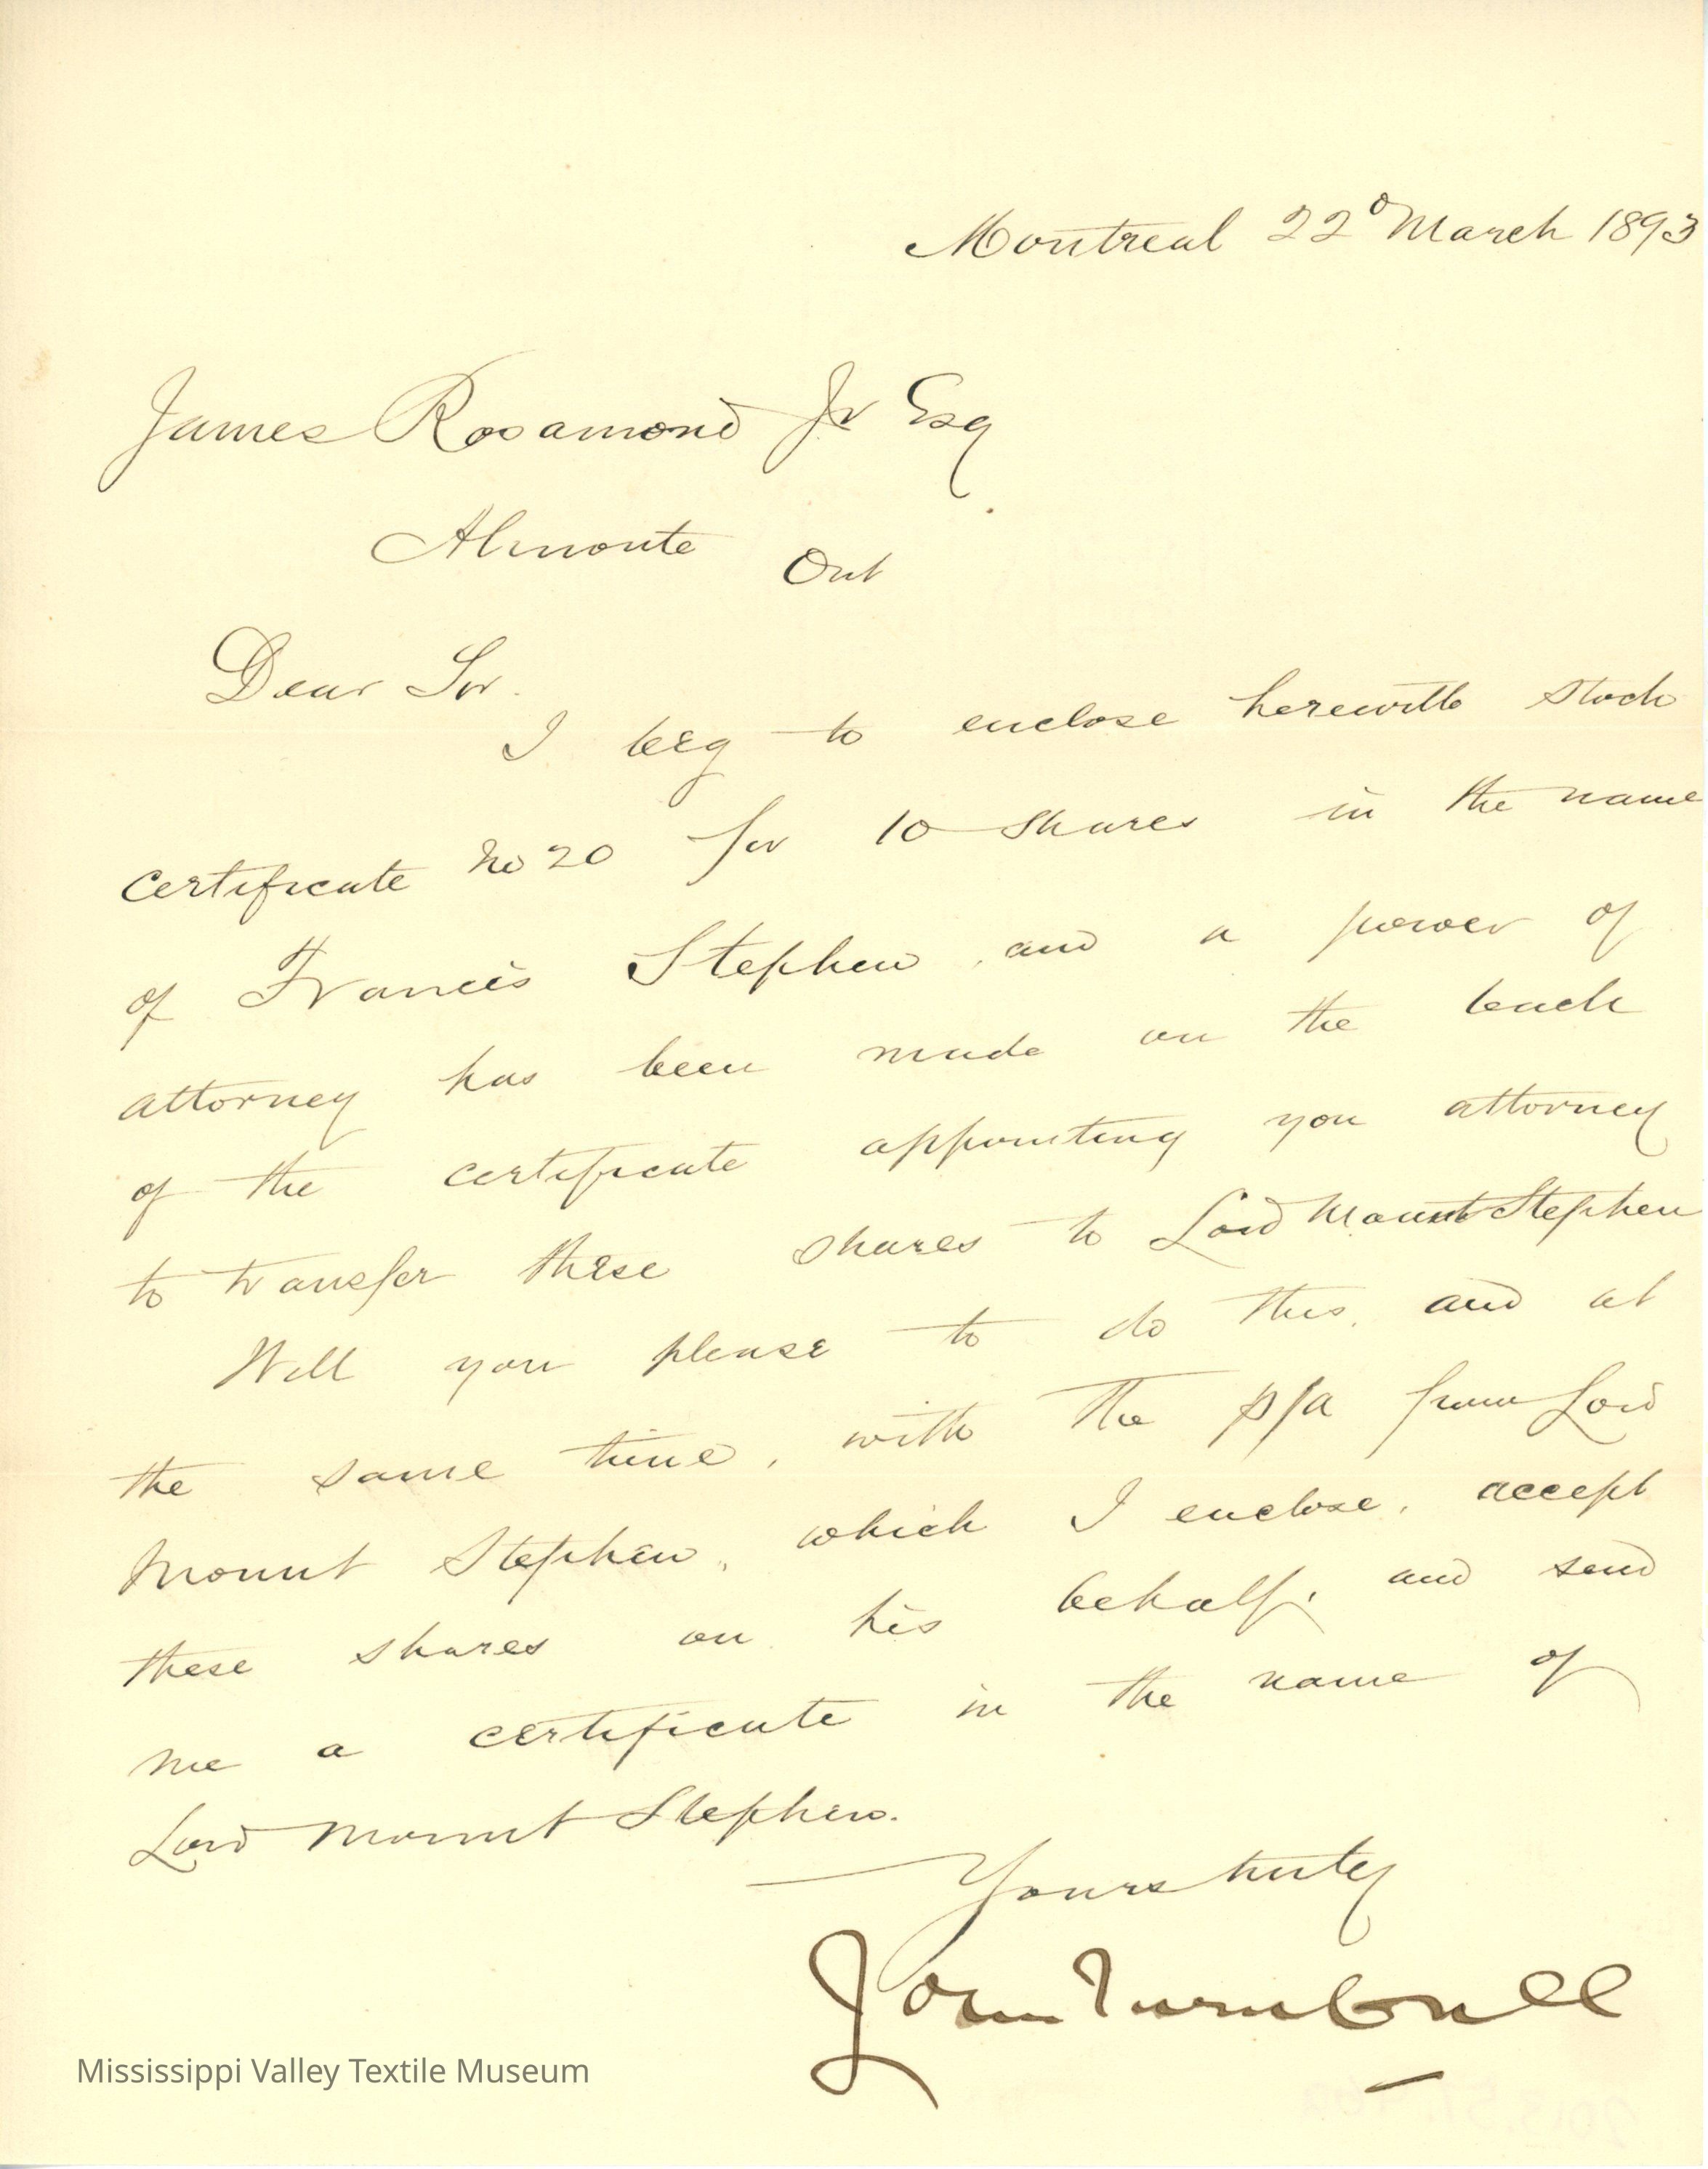 Montreal 22d March 1893
James Rosamond Jr Esq
Almonte Ont
Dear Sir.
I beg to enclose herewith Stock
certificate No 20 for 10 Shares in the name
of Francis Stephen, and a power of
attorney has been made on the back
of the certificate appointing you attorney
to transfer these shares to Lord Mount Stephen
Will you please to do this, and at
the same time, with the p/a from Lord
Mount Stephen, which I enclose, accept
these shares on his behalf, and send
me a certificate in the name of
Lord Mount Stephen.
Yours truly
John Turnbull
Mississippi Valley Textile Museum